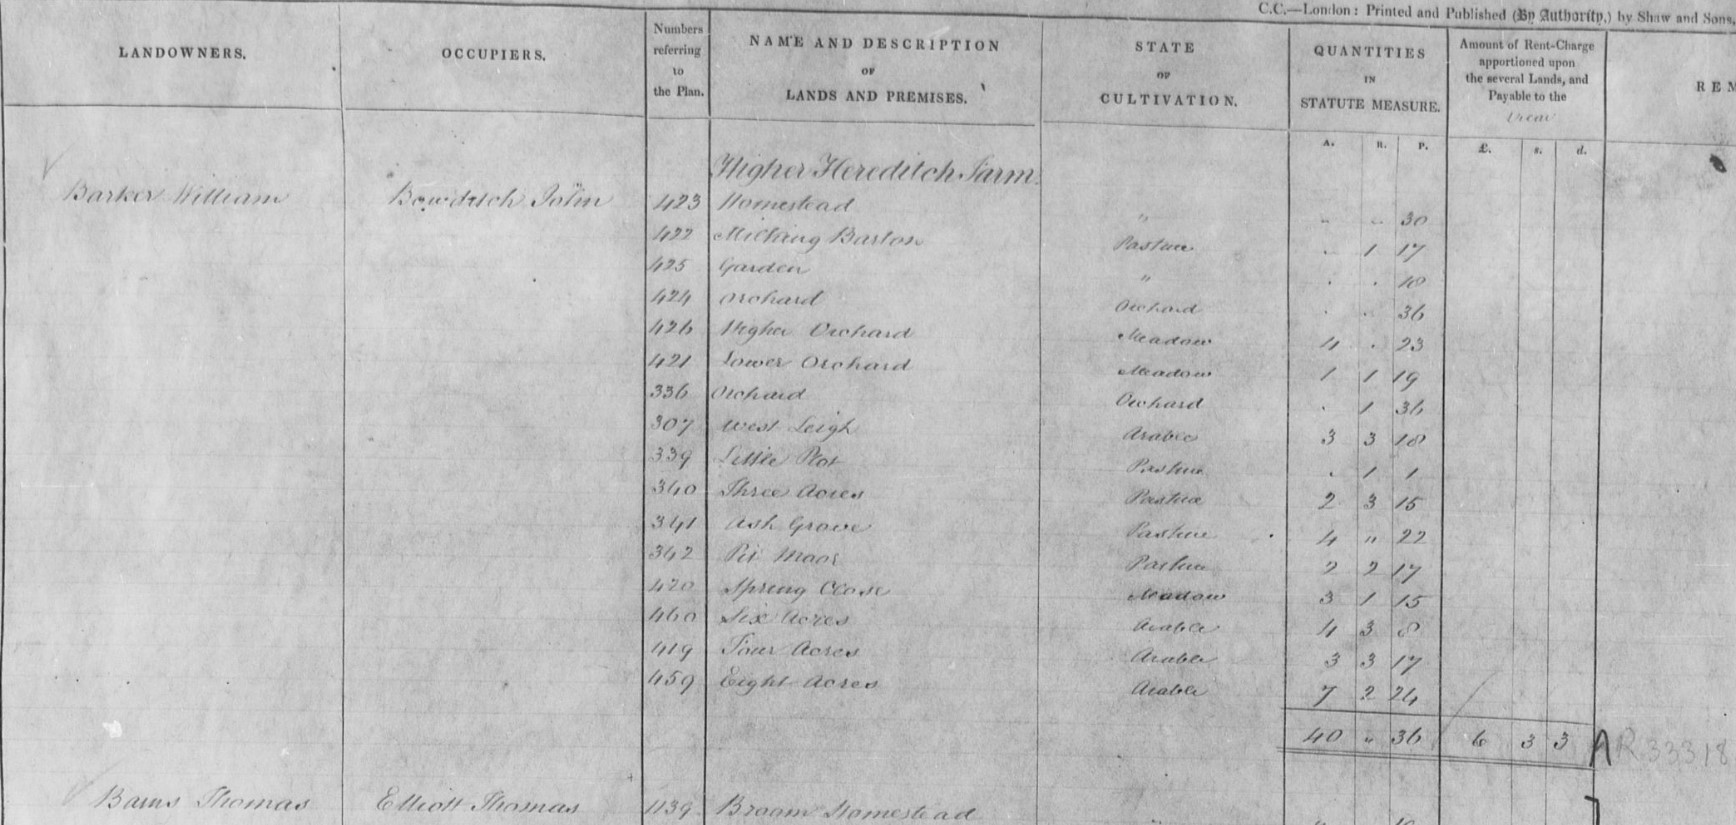 C.C.—London: Printed and Published (By Authority,) by Shaw and Sons,
LANDOWNERS. OCCUPIERS. Numbers referring to the Plan. NAME AND DESCRIPTION OF LANDS AND PREMISES. STATE OF CULTIVATION. QUANTITIES IN STATUTE MEASURE. Amount of Rent-Charge apportioned upon the several Lands, and Payable to the Vicar REM
A. R. P. £. s. d.
Higher Hereditch Farm
Barker William Bowditch John 423 Homestead " " " 30
422 Milking Barton Pasture . 1 17
425 Garden " . . 18
424 Orchard Orchard . . 36
426 Higher Orchard Meadow 4 . 23
421 Lower Orchard Meadow 1 1 19
336 Orchard Orchard . 1 36
307 West Leigh Arable 3 3 18
339 Little Plot Pasture . 1 1
340 Three Acres Pasture 2 3 15
341 Ash Grove Pasture 4 " 22
342 Pit Moor Pasture 2 2 17
420 Spring Close Meadow 3 1 15
460 Six Acres Arable 4 3 8
419 Four Acres Arable 3 3 17
459 Eight Acres Arable 7 2 24
40 " 36 6 3 3 AR 33318
Barns Thomas Elliott Thomas 1139 Broom Homestead